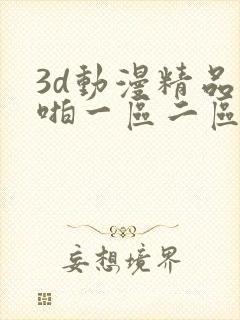 3d動漫精品
啪一區二區
妄想境界